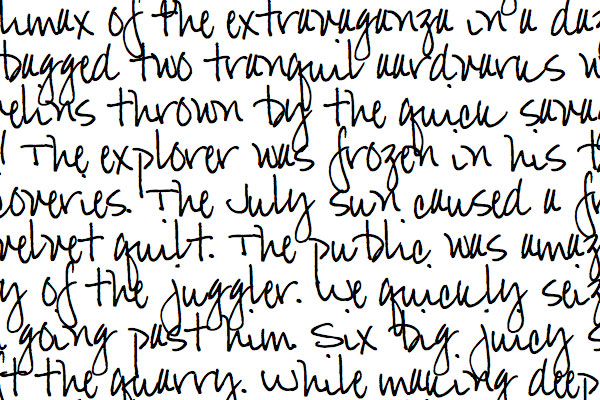 of the extravaganza in a
bagged two tranquil aardvarks
thrown by the quick
! The explorer was frozen in his
coveries. The July sun caused a
velvet quilt. The public was
y of the juggler. We quickly
going past him. Six big juicy
the quarry. While making deep